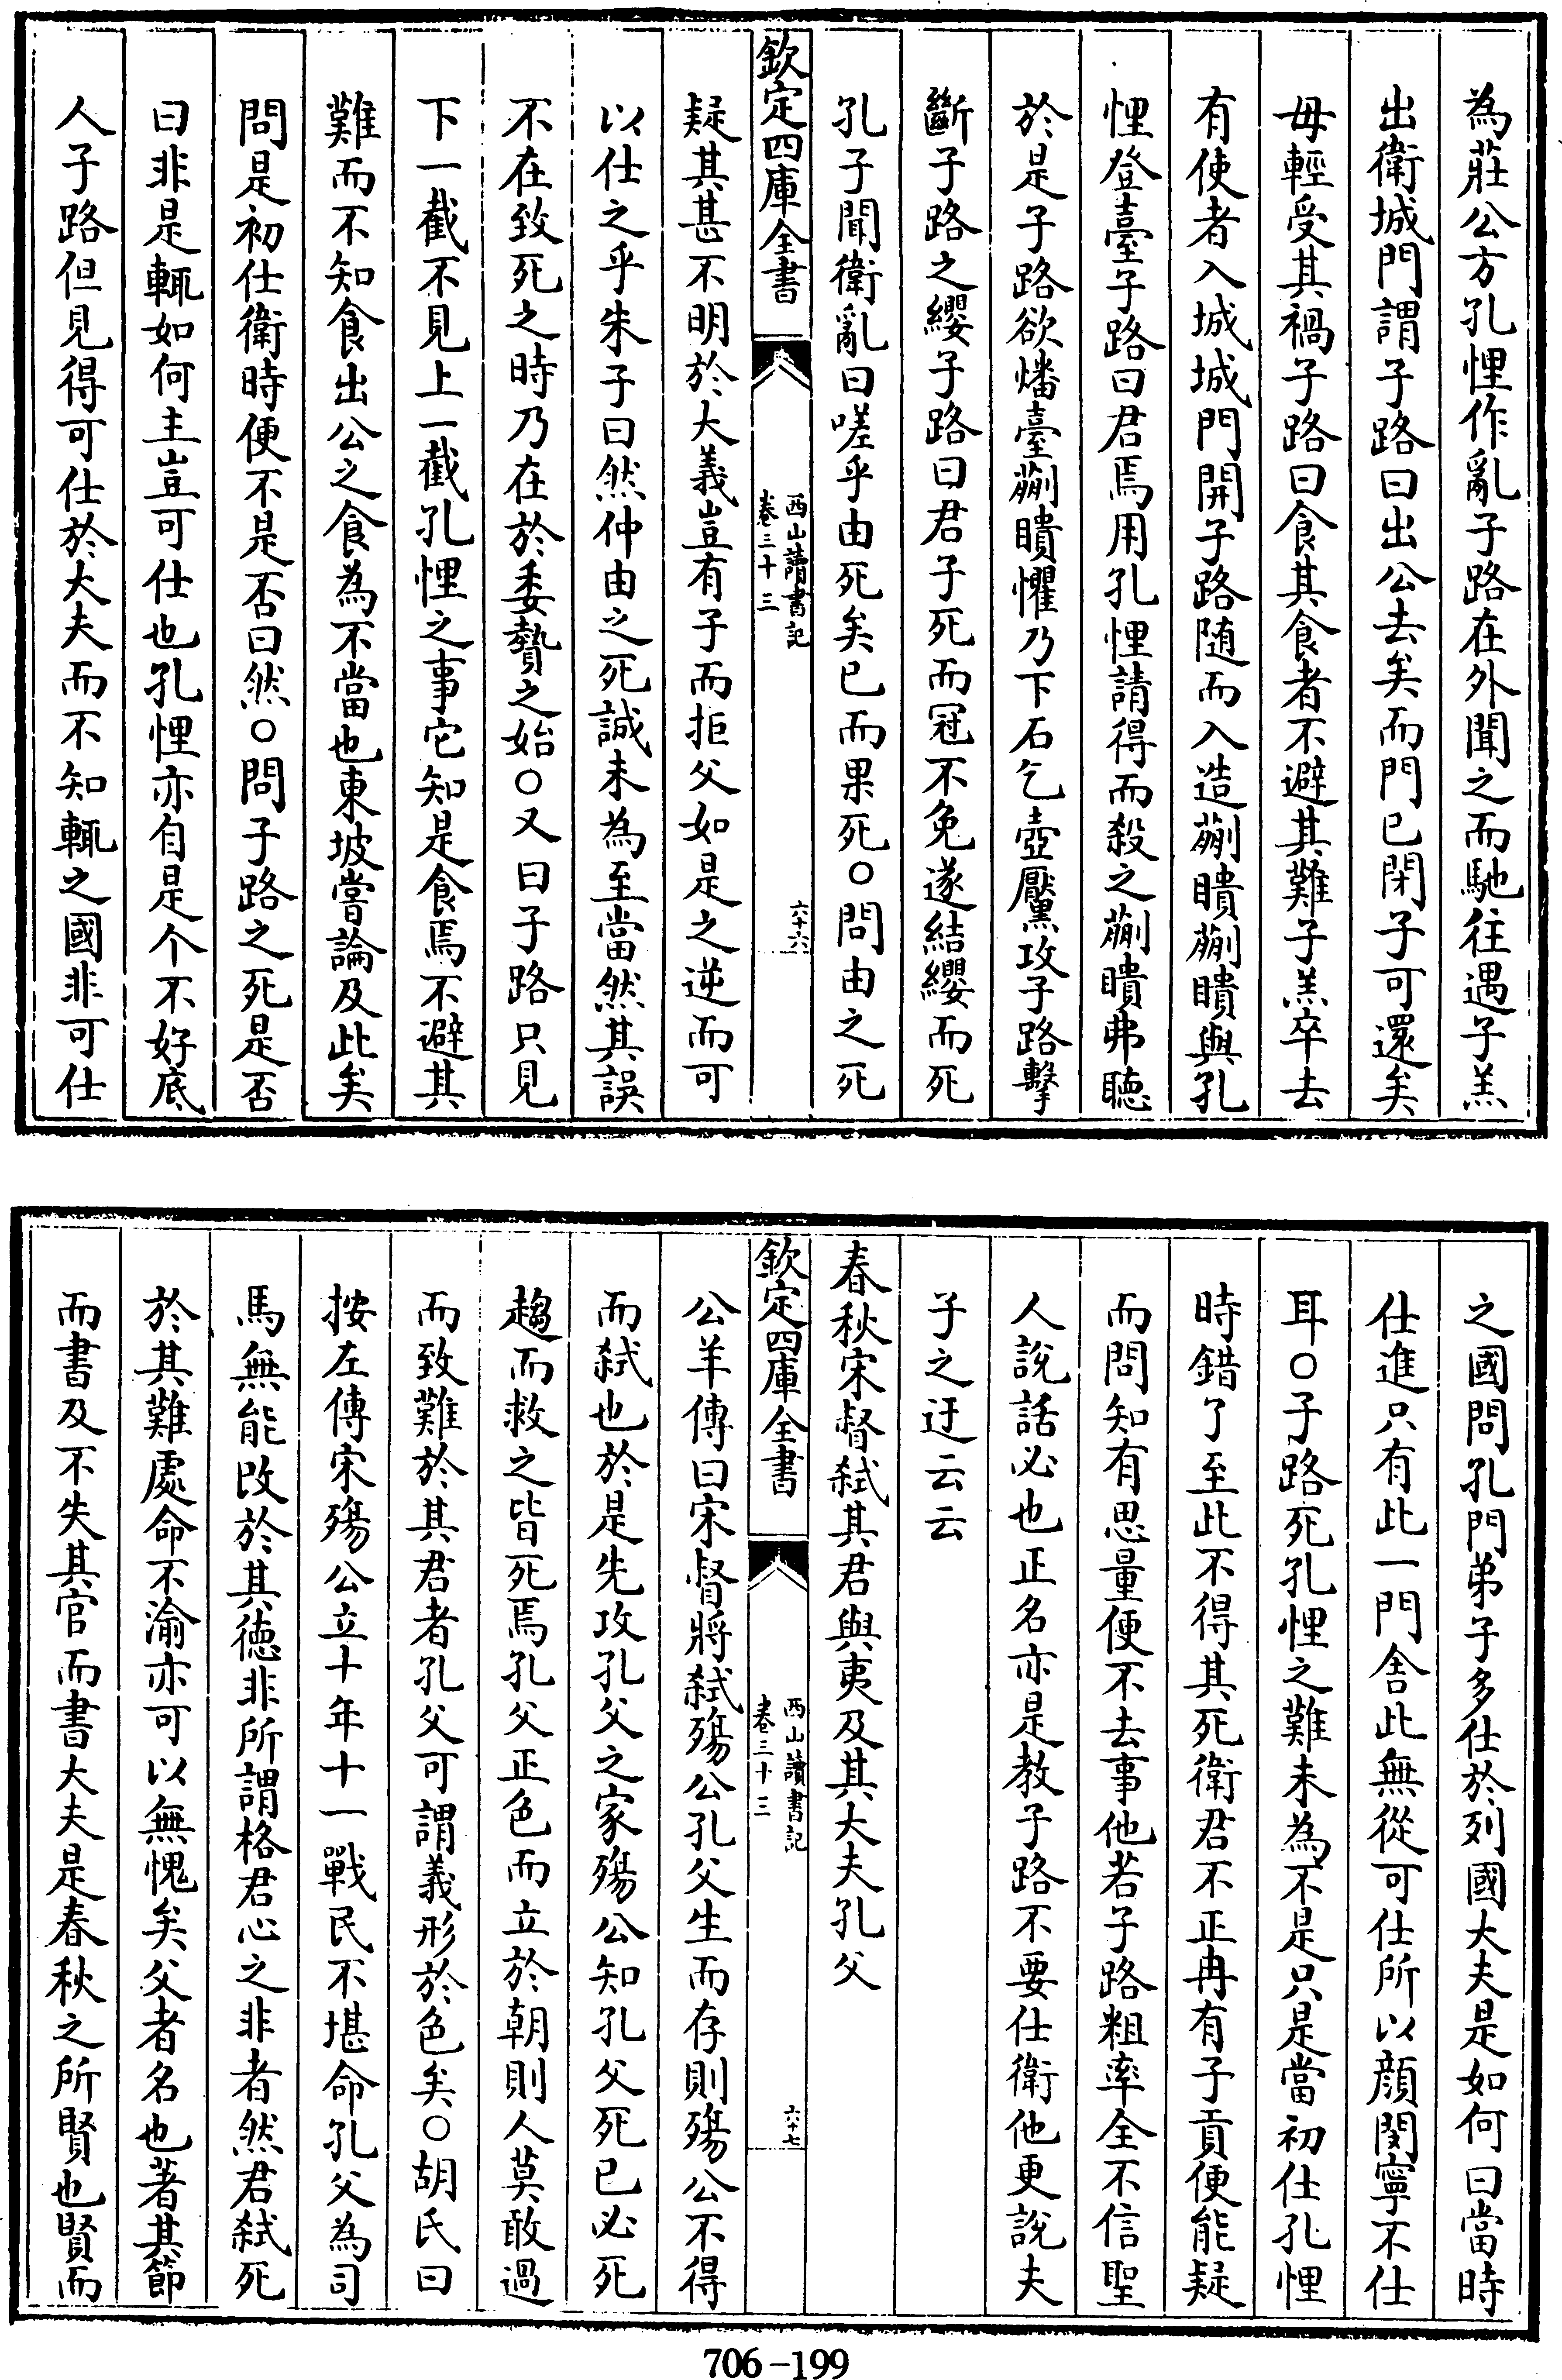 為莊公方孔悝作亂子路在外聞之而馳往遇子羔
出衛城門謂子路曰出公去矣而門已閉子可還矣
毋輕受其禍子路曰食其食者不避其難子羔卒去
有使者入城城門開子路随而入造蒯聵蒯聵與孔
悝登臺子路曰君焉用孔悝請得而殺之蒯聵弗聽
於是子路欲燔臺蒯聵懼乃下石乞壺黶攻子路擊
斷子路之纓子路曰君子死而冠不免遂結纓而死
孔子聞衛亂曰嗟乎由死矣已而果死○問由之死
欽定四庫全書
西山讀書記
卷三十三
六十六
疑其甚不明於大義豈有子而拒父如是之逆而可
以仕之乎朱子曰然仲由之死誠未為至當然其誤
不在致死之時乃在於委贄之始○又曰子路只見
下一截不見上一截孔悝之事它知是食焉不避其
難而不知食出公之食為不當也東坡嘗論及此矣
問是初仕衛時便不是否曰然○問子路之死是否
曰非是輒如何主豈可仕也孔悝亦自是个不好底
人子路但見得可仕於大夫而不知輒之國非可仕
之國問孔門弟子多仕於列國大夫是如何曰當時
仕進只有此一門舍此無從可仕所以顔閔寧不仕
耳○子路死孔悝之難未為不是只是當初仕孔悝
時錯了至此不得其死衛君不正冉有子貢便能疑
而問知有思量便不去事他若子路粗率全不信聖
人說話必也正名亦是教子路不要仕衛他更說夫
子之迂云云
春秋宋督弑其君與夷及其大夫孔父
欽定四庫全書
西山讀書記
卷三十三
六十七
公羊傳曰宋督將弑殤公孔父生而存則殤公不得
而弑也於是先攻孔父之家殤公知孔父死已必死
趨而救之皆死焉孔父正色而立於朝則人莫敢過
而致難於其君者孔父可謂義形於色矣○胡氏曰
按左傳宋殤公立十年十一戰民不堪命孔父為司
馬無能改於其徳非所謂格君心之非者然君弑死
於其難處命不渝亦可以無愧矣父者名也著其節
而書及不失其官而書大夫是春秋之所賢也賢而
706-199